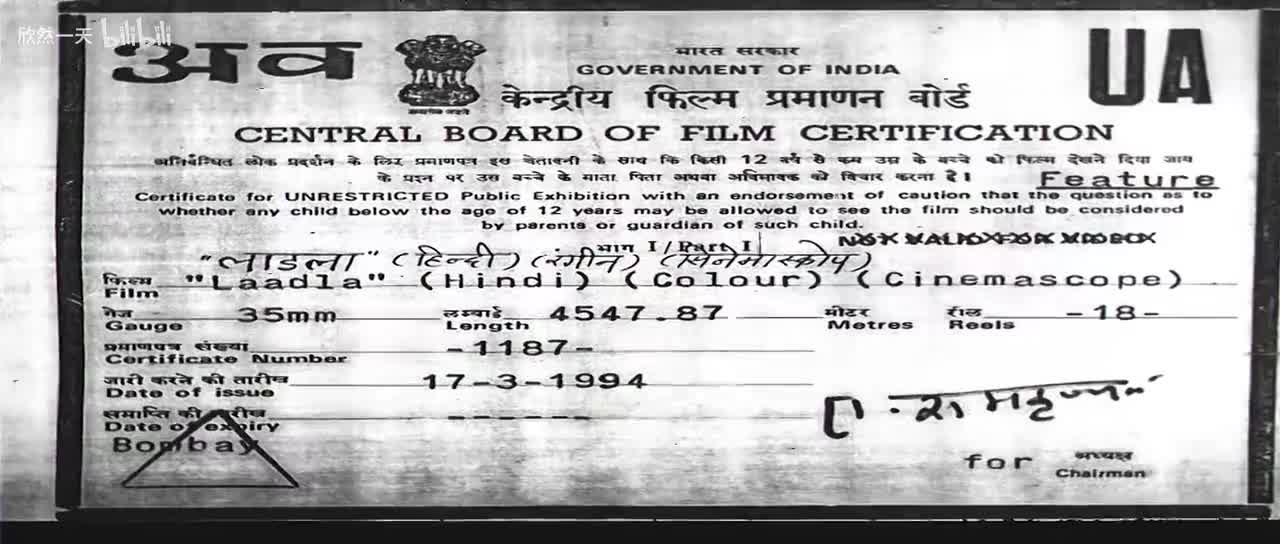 欣然一天 bilibili
अव
भारत सरकार
UA
GOVERNMENT OF INDIA
केन्द्रीय फिल्म प्रमाणन बोर्ड
CENTRAL BOARD OF FILM CERTIFICATION
अनिर्बन्धित लोक प्रदर्शन के लिए प्रमाणपत्र इस चेतावनी के साथ कि किसी 12 वर्ष से कम उम्र के बच्चे को फिल्म देखने दिया जाय
के प्रश्न पर उस बच्चे के माता पिता अथवा अभिभावक को विचार करना है।
Feature
Certificate for UNRESTRICTED Public Exhibition with an endorsement of caution that the question as to
whether any child below the age of 12 years may be allowed to see the film should be considered
by parents or guardian of such child.
भाग I/Part I
NOT VALID FOR VIDEO
"लाडला" (हिन्दी) (रंगीन) (सिनेमास्कोप)
फिल्म
Film "Laadla" (Hindi) (Colour) (Cinemascope)
गेज लम्बाई मीटर रील
Gauge 35mm Length 4547.87 Metres Reels -18-
प्रमाणपत्र संख्या
Certificate Number -1187-
जारी करने की तारीख
Date of issue 17-3-1994
समाप्ति की तारीख
Date of expiry ------
Bombay
for अध्यक्ष
Chairman